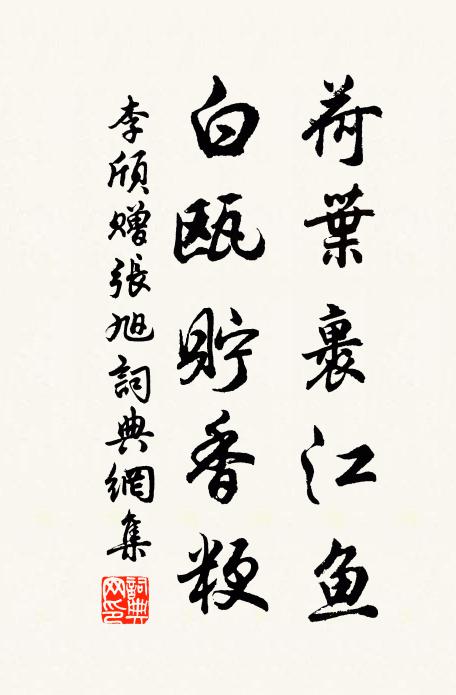 荷葉裹江魚
白甌貯香粳
李頎贈張旭詞典網集
詞典網印